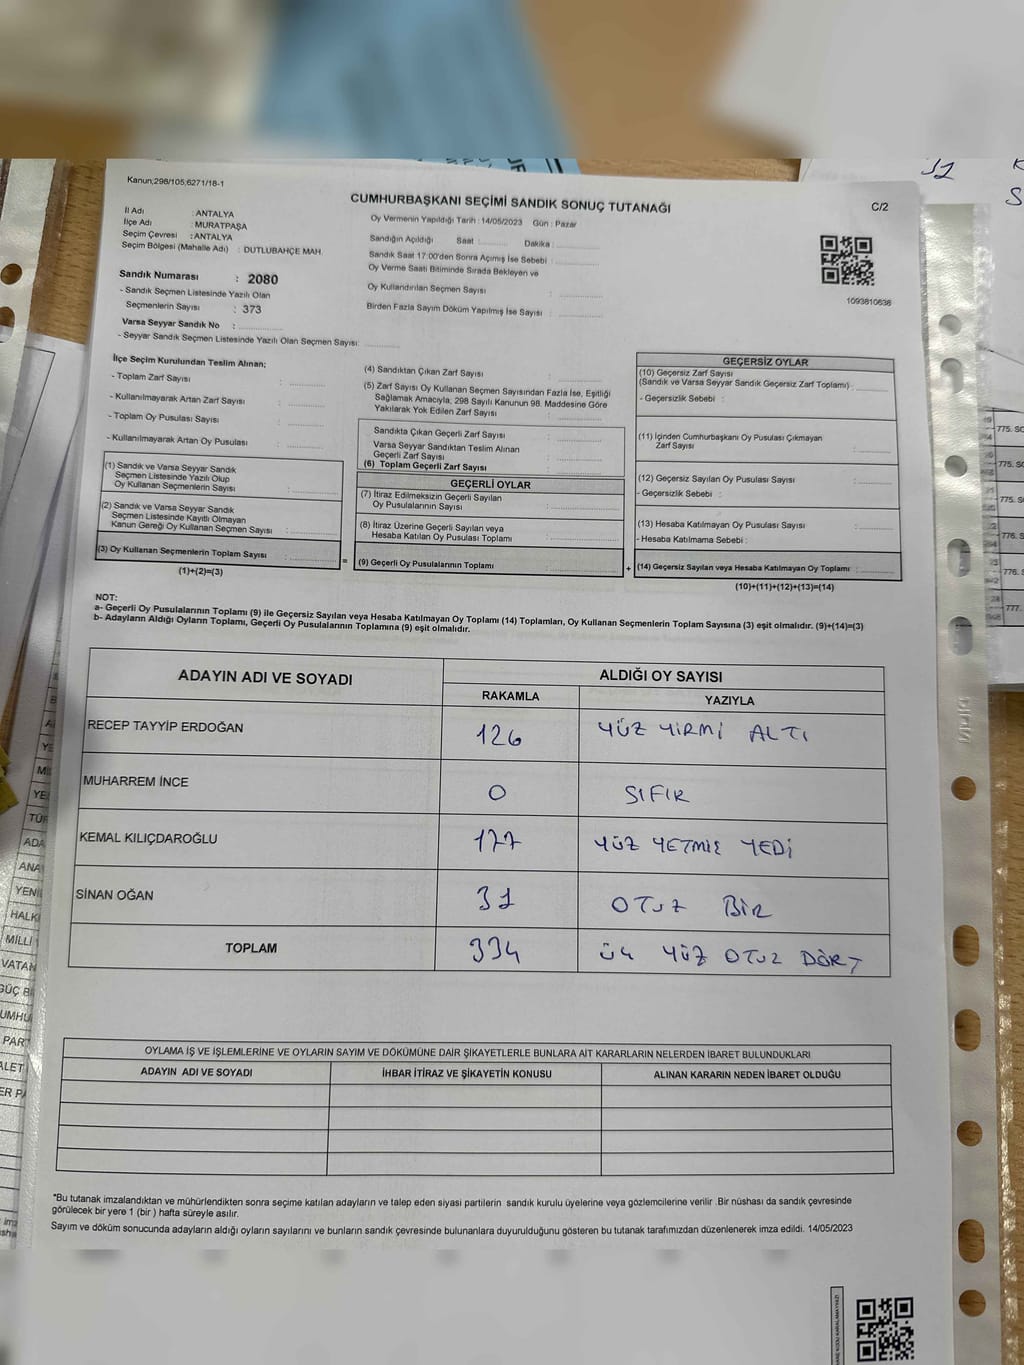 Kanun;298/105;6271/18-1
CUMHURBAŞKANI SEÇİMİ SANDIK SONUÇ TUTANAĞI
C/2
İl Adı : ANTALYA
İlçe Adı : MURATPAŞA
Seçim Çevresi : ANTALYA
Seçim Bölgesi (Mahalle Adı) : DUTLUBAHÇE MAH.
Sandık Numarası : 2080
- Sandık Seçmen Listesinde Yazılı Olan
Seçmenlerin Sayısı : 373
Varsa Seyyar Sandık No :
- Seyyar Sandık Seçmen Listesinde Yazılı Olan Seçmen Sayısı:
Oy Vermenin Yapıldığı Tarih : 14/05/2023 Gün : Pazar
Sandığın Açıldığı Saat : Dakika :
Sandık Saat 17:00'den Sonra Açımış İse Sebebi :
Oy Verme Saati Bitiminde Sırada Bekleyen ve
Oy Kullandırılan Seçmen Sayısı :
Birden Fazla Sayım Döküm Yapılmış İse Sayısı :
1093810636
İlçe Seçim Kurulundan Teslim Alınan;
- Toplam Zarf Sayısı :
- Kullanılmayarak Artan Zarf Sayısı :
- Toplam Oy Pusulası Sayısı :
- Kullanılmayarak Artan Oy Pusulası :
(1) Sandık ve Varsa Seyyar Sandık
Seçmen Listesinde Yazılı Olup
Oy Kullanan Seçmenlerin Sayısı :
(2) Sandık ve Varsa Seyyar Sandık
Seçmen Listesinde Kayıtlı Olmayan
Kanun Gereği Oy Kullanan Seçmen Sayısı :
(3) Oy Kullanan Seçmenlerin Toplam Sayısı :
(1)+(2)=(3)
(4) Sandıktan Çıkan Zarf Sayısı :
(5) Zarf Sayısı Oy Kullanan Seçmen Sayısından Fazla İse, Eşitliği
Sağlamak Amacıyla, 298 Sayılı Kanunun 98. Maddesine Göre
Yakılarak Yok Edilen Zarf Sayısı :
Sandıkta Çıkan Geçerli Zarf Sayısı :
Varsa Seyyar Sandıktan Teslim Alınan
Geçerli Zarf Sayısı :
(6) Toplam Geçerli Zarf Sayısı :
GEÇERLİ OYLAR
(7) İtiraz Edilmeksizin Geçerli Sayılan
Oy Pusulalarının Sayısı :
(8) İtiraz Üzerine Geçerli Sayılan veya
Hesaba Katılan Oy Pusulası Toplamı :
= (9) Geçerli Oy Pusulalarının Toplamı :
GEÇERSİZ OYLAR
(10) Geçersiz Zarf Sayısı
(Sandık ve Varsa Seyyar Sandık Geçersiz Zarf Toplamı) :
- Geçersizlik Sebebi :
(11) İçinden Cumhurbaşkanı Oy Pusulası Çıkmayan
Zarf Sayısı :
(12) Geçersiz Sayılan Oy Pusulası Sayısı :
- Geçersizlik Sebebi :
(13) Hesaba Katılmayan Oy Pusulası Sayısı :
- Hesaba Katılmama Sebebi :
+ (14) Geçersiz Sayılan veya Hesaba Katılmayan Oy Toplamı :
(10)+(11)+(12)+(13)=(14)
NOT:
a- Geçerli Oy Pusulalarının Toplamı (9) ile Geçersiz Sayılan veya Hesaba Katılmayan Oy Toplamı (14) Toplamları, Oy Kullanan Seçmenlerin Toplam Sayısına (3) eşit olmalıdır. (9)+(14)=(3)
b- Adayların Aldığı Oyların Toplamı, Geçerli Oy Pusulalarının Toplamına (9) eşit olmalıdır.
ADAYIN ADI VE SOYADI ALDIĞI OY SAYISI
RAKAMLA YAZIYLA
RECEP TAYYİP ERDOĞAN 126 YÜZ YİRMİ ALTI
MUHARREM İNCE 0 SIFIR
KEMAL KILIÇDAROĞLU 177 YÜZ YETMİŞ YEDİ
SİNAN OĞAN 31 OTUZ BİR
TOPLAM 334 ÜÇ YÜZ OTUZ DÖRT
OYLAMA İŞ VE İŞLEMLERİNE VE OYLARIN SAYIM VE DÖKÜMÜNE DAİR ŞİKAYETLERLE BUNLARA AİT KARARLARIN NELERDEN İBARET BULUNDUKLARI
ADAYIN ADI VE SOYADI İHBAR İTİRAZ VE ŞİKAYETİN KONUSU ALINAN KARARIN NEDEN İBARET OLDUĞU
*Bu tutanak imzalandıktan ve mühürlendikten sonra seçime katılan adayların ve talep eden siyasi partilerin sandık kurulu üyelerine veya gözlemcilerine verilir .Bir nüshası da sandık çevresinde
görülecek bir yere 1 (bir ) hafta süreyle asılır.
Sayım ve döküm sonucunda adayların aldığı oyların sayılarını ve bunların sandık çevresinde bulunanlara duyurulduğunu gösteren bu tutanak tarafımızdan düzenlenerek imza edildi. 14/05/2023